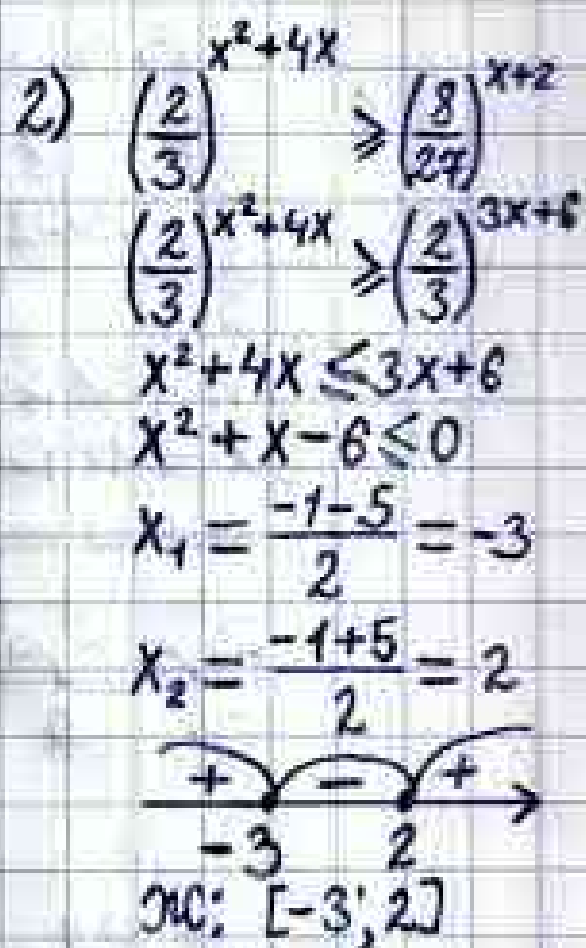 2) (2/3)^(x²+4x) ⩾ (8/27)^(x+2)
(2/3)^(x²+4x) ⩾ (2/3)^(3x+6)
x²+4x ≤ 3x+6
x²+x-6 ≤ 0
x₁ = (-1-5)/2 = -3
x₂ = (-1+5)/2 = 2
+ - +
-3 2
жс: [-3; 2]